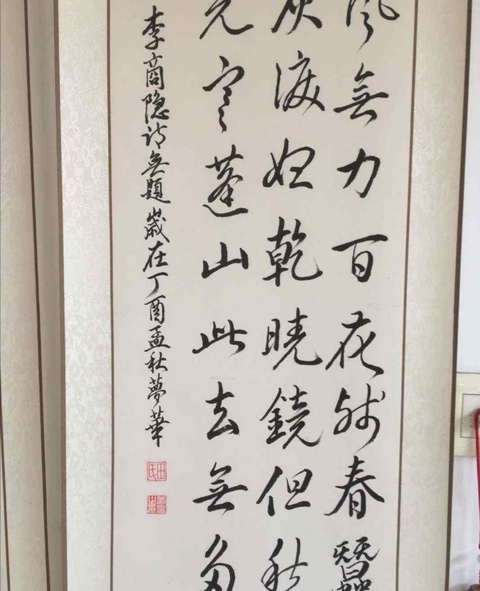 風無力百花残春蠶
灰淚始乾曉鏡但愁
光寒蓬山此去無多
李商隐詩無題歲在丁酉孟秋夢華